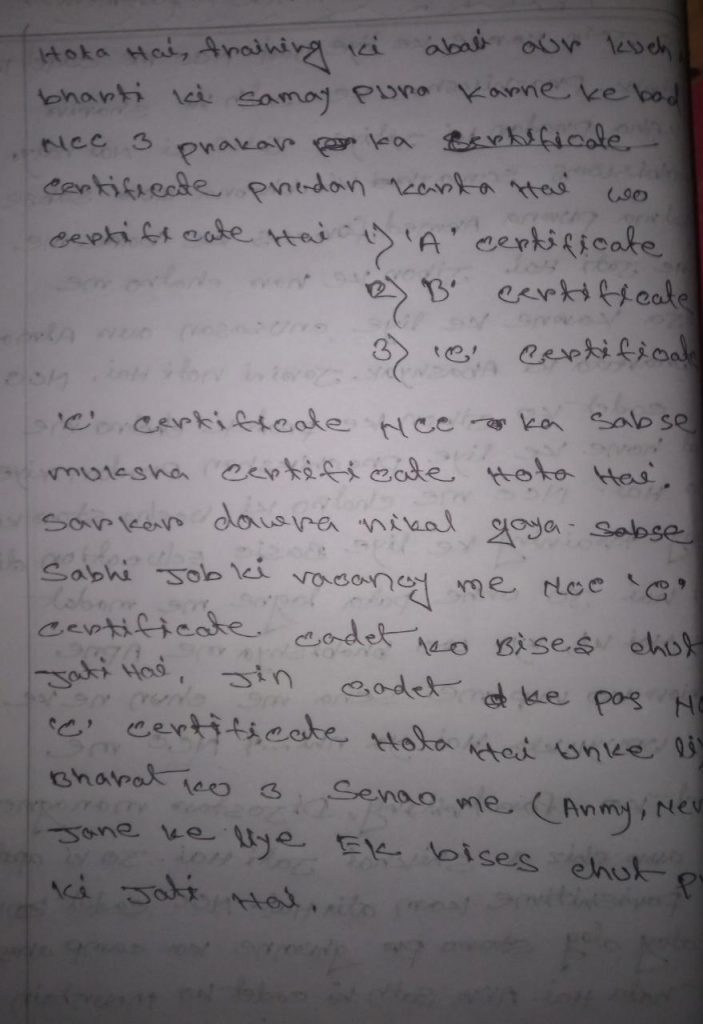 Hota Hai, training ki abali aur kuch
bharti ki samay pura karne ke bad
Ncc 3 prakar ka certificate
certificate pradan karta Hai wo
certificate Hai 1) 'A' certificate
2) 'B' certificate
3) 'C' certificate
'C' certificate Ncc ka sabse
muksha certificate Hota Hai.
Sarkar dawra nikal gaya sabse
Sabhi Job ki vacancy me Ncc 'C'
certificate cadet ko Bises chut
Jati Hai, Jin cadet ke pas
'C' certificate Hota Hai unke
Bharat ko 3 Senao me (Army,
Jane ke liye Ek bises chut
ki Jati Hai.